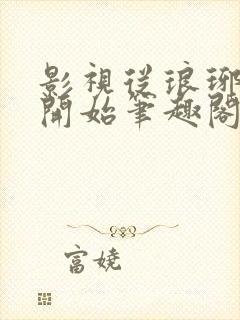 影視從琅琊
開始筆趣閣
富嬈